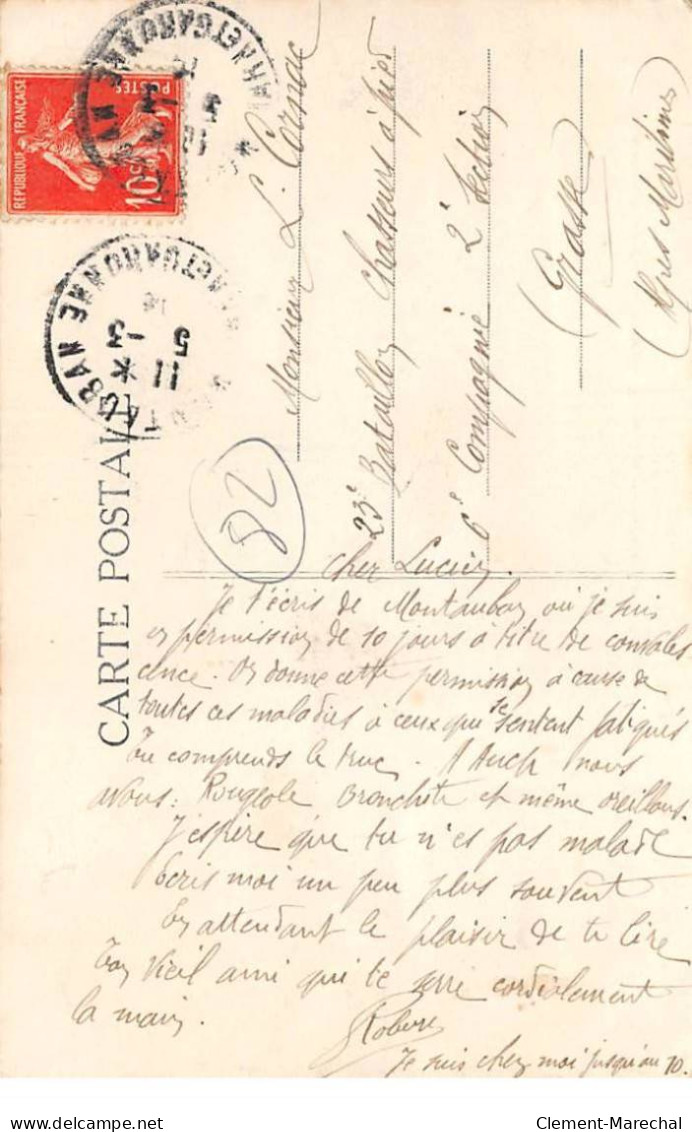 REPUBLIQUE FRANÇAISE
POSTES
10c
TARN ET GARONNE
MONTAUBAN
TARN ET GARONNE
11 *
5 -3
14
CARTE POSTALE
82
Monsieur L. Cornac
23e Bataillon Chasseurs à pied
6e Compagnie 2e Section
Grasse
(Alpes Maritimes
Cher Lucien.
Je t'écris de Montauban où je suis
en permission de 10 jours à titre de convales
cence. On donne cette permission à cause de
toutes ces maladies à ceux qui se sentent fatigués
Tu comprends le truc. A Auch nous
avons: Rougeole Bronchite et même oreillons.
J'espère que tu n'es pas malade
écris moi un peu plus souvent
En attendant le plaisir de te lire
Ton vieil ami qui te serre cordialement
la main.
Robert
Je suis chez moi jusqu'au 10.
Clement-Marechal